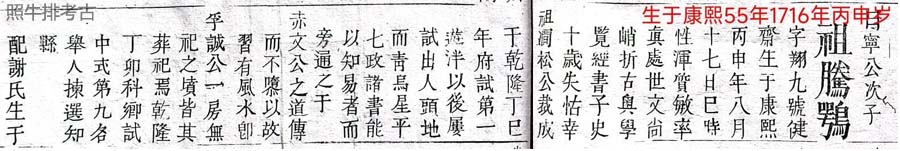 照牛排考古
生于康熙55年1716年丙申岁
寧公次子
祖騰鶚
字翔九號健
齋生于康熙
丙申年八月
十七日巳時
性渾質敏率
真處世文尚
峭折古與學
覽經書子史
十歲失怙幸
祖澗松公裁成
于乾隆丁巳
年府試第一
遊泮以後屢
試出人頭地
而靑烏星平
七政諸書能
以知易者而
旁通之于
赤文公之道傳
而不墜以故
習有風水卽
孚誠公一房無
祀之墳皆其
葬祀焉乾隆
丁卯科鄉試
中式第九名
舉人揀選知
縣
配謝氏生于